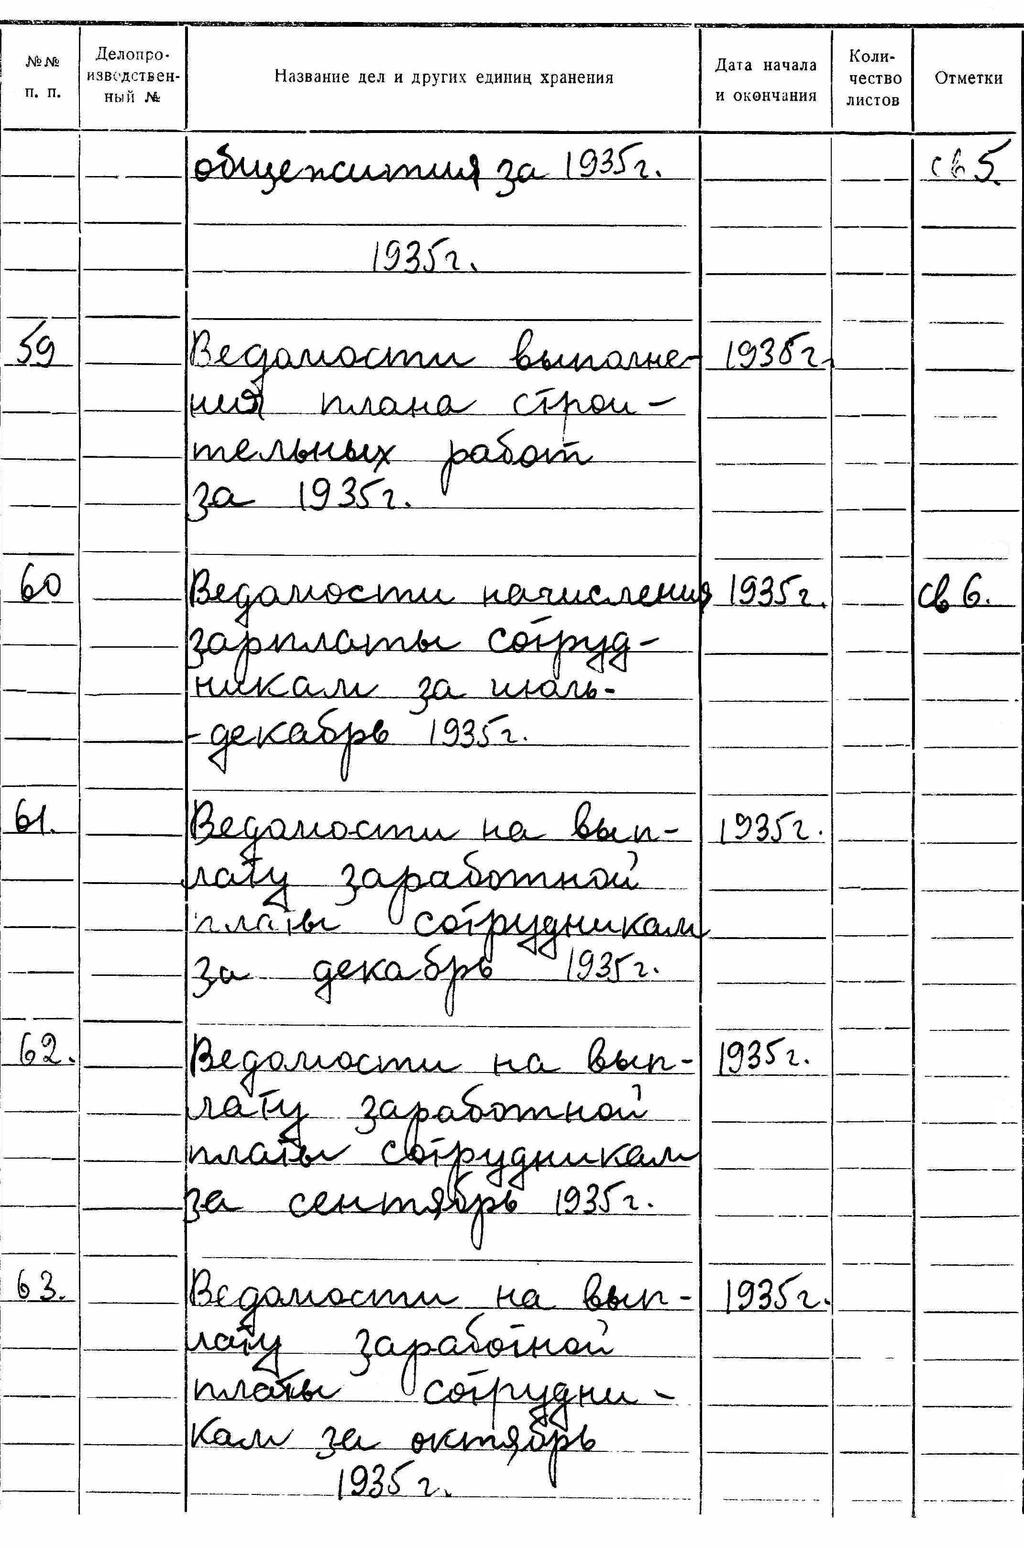 №№ п. п. Делопро-изводствен-ный № Название дел и других единиц хранения Дата начала и окончания Коли-чество листов Отметки
общежития за 1935г. св 5.
1935г.
59 Ведомости выполне- 1935г.
ния плана строи-
тельных работ
за 1935г.
60 Ведомости начисления 1935г. св 6.
зарплаты сотруд-
никам за июль-
-декабрь 1935г.
61. Ведомости на вып- 1935г.
лату заработной
платы сотрудникам
за декабрь 1935г.
62. Ведомости на вып- 1935г.
лату заработной
платы сотрудникам
за сентябрь 1935г.
63. Ведомости на вып- 1935г.
лату заработной
платы сотрудни-
кам за октябрь
1935г.